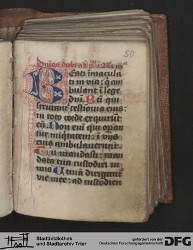 50
Beati inmacula
ti in via: q̄ am
bulant ī lege
dni. Bti qui
scrutant testionia eius:
in toto corde exquirūt
eū. Non eni qui opan
tur
ambulauerunt.
Tu mandasti: man
data tua custodiri ni
mis. Utinā dirigant̄
vie mee: ad custodien
Stadtbibliothek
und Stadtarchiv Trier
gefördert von der
DFG
Deutschen Forschungsgemeinschaft